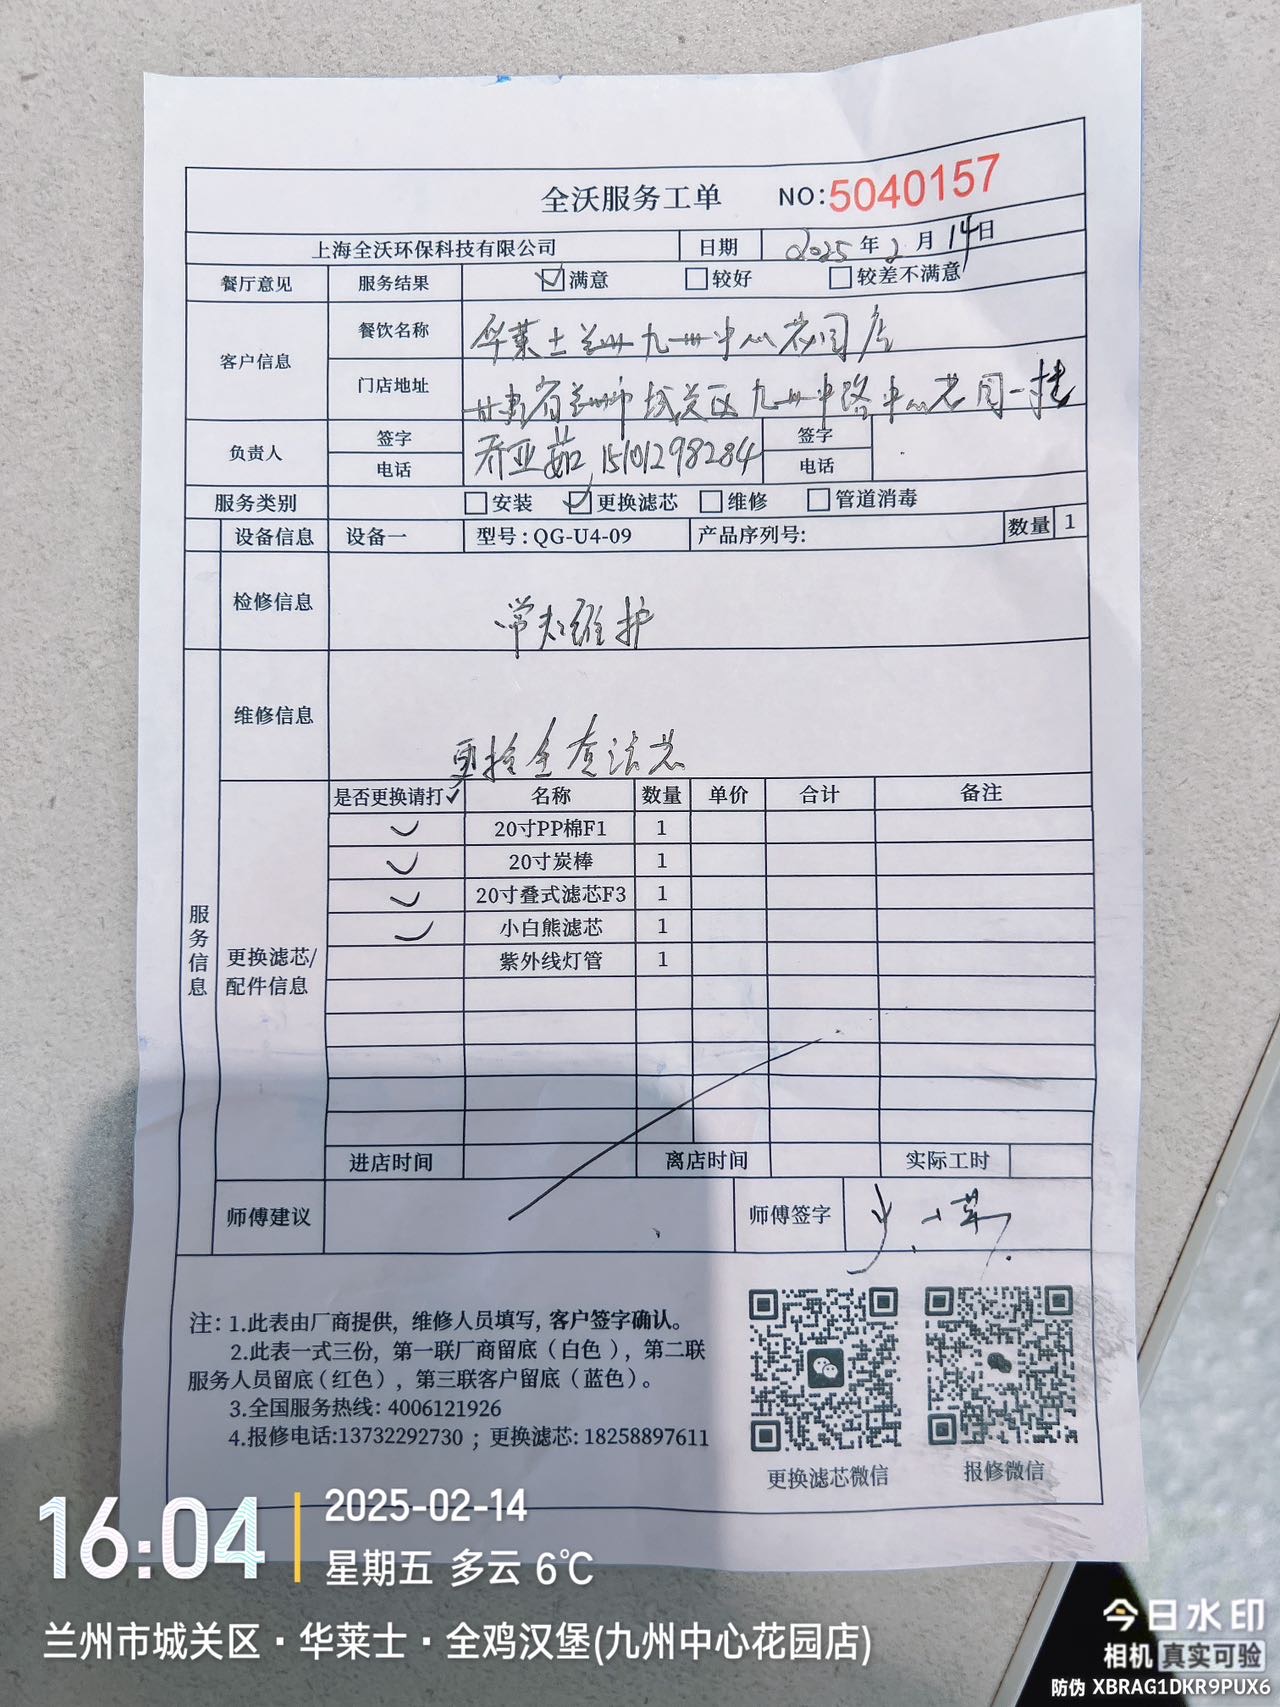 全沃服务工单 NO:5040157
上海全沃环保科技有限公司 日期 2025年2月14日
餐厅意见 服务结果 满意 较好 较差不满意
客户信息 餐饮名称 华莱士兰州九州中心花园店
门店地址 甘肃省兰州市城关区九州中路中心花园一楼
负责人 签字 乔亚茹 签字
电话 15101298284 电话
服务类别 安装 更换滤芯 维修 管道消毒
设备信息 设备一 型号:QG-U4-09 产品序列号: 数量 1
检修信息 常规维护
维修信息 更换全套滤芯
服务信息
更换滤芯/配件信息
是否更换请打✓ 名称 数量 单价 合计 备注
✓ 20寸PP棉F1 1
✓ 20寸炭棒 1
✓ 20寸叠式滤芯F3 1
✓ 小白熊滤芯 1
紫外线灯管 1
进店时间 离店时间 实际工时
师傅建议 师傅签字
注:1.此表由厂商提供,维修人员填写,客户签字确认。
2.此表一式三份,第一联厂商留底(白色),第二联
服务人员留底(红色),第三联客户留底(蓝色)。
3.全国服务热线:4006121926
4.报修电话:13732292730;更换滤芯:18258897611
更换滤芯微信 报修微信
16:04 2025-02-14
星期五 多云 6℃
兰州市城关区·华莱士·全鸡汉堡(九州中心花园店)
今日水印
相机 真实可验
防伪 XBRAG1DKR9PUX6